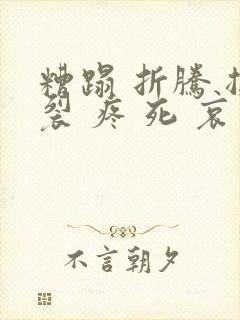 糟蹋 折騰
裂 疼 死 哀
不言朝夕